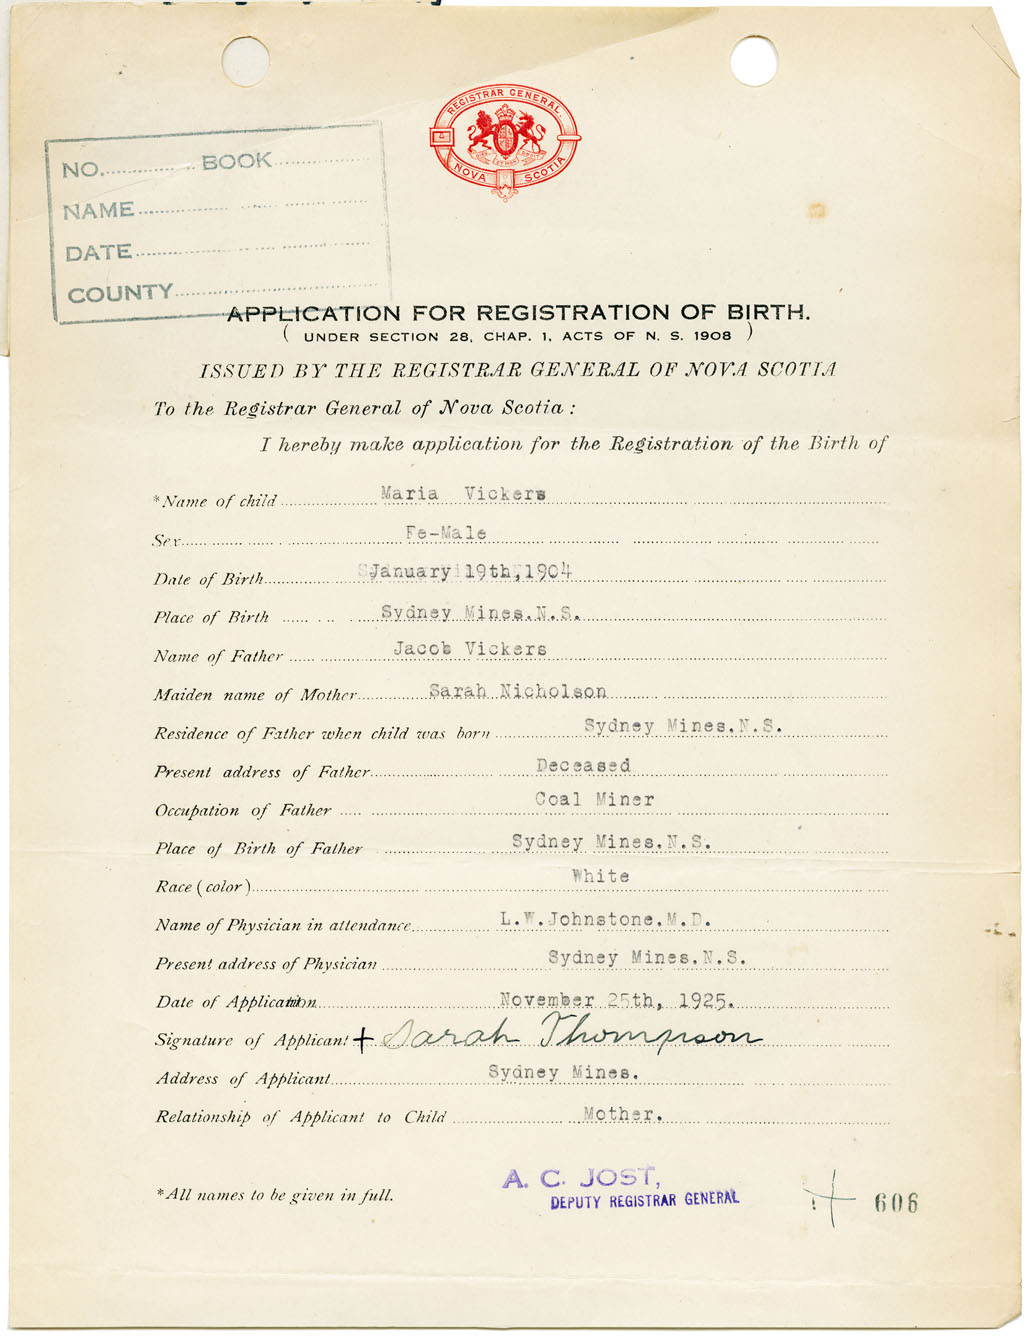 REGISTRAR GENERAL.
NOVA SCOTIA
NO. BOOK
NAME
DATE
COUNTY
APPLICATION FOR REGISTRATION OF BIRTH.
( UNDER SECTION 28, CHAP. 1, ACTS OF N. S. 1908 )
ISSUED BY THE REGISTRAR GENERAL OF NOVA SCOTIA
To the Registrar General of Nova Scotia :
I hereby make application for the Registration of the Birth of
*Name of child Maria Vickers
Sex Fe-Male
Date of Birth January 19th, 1904
Place of Birth Sydney Mines.N.S.
Name of Father Jacob Vickers
Maiden name of Mother Sarah Nicholson
Residence of Father when child was born Sydney Mines.N.S.
Present address of Father Deceased
Occupation of Father Coal Miner
Place of Birth of Father Sydney Mines.N.S.
Race (color) White
Name of Physician in attendance L.W.Johnstone.M.D.
Present address of Physician Sydney Mines.N.S.
Date of Application November 25th, 1925.
Signature of Applicant + Sarah Thompson
Address of Applicant Sydney Mines.
Relationship of Applicant to Child Mother.
*All names to be given in full.
A. C. JOST,
DEPUTY REGISTRAR GENERAL
606